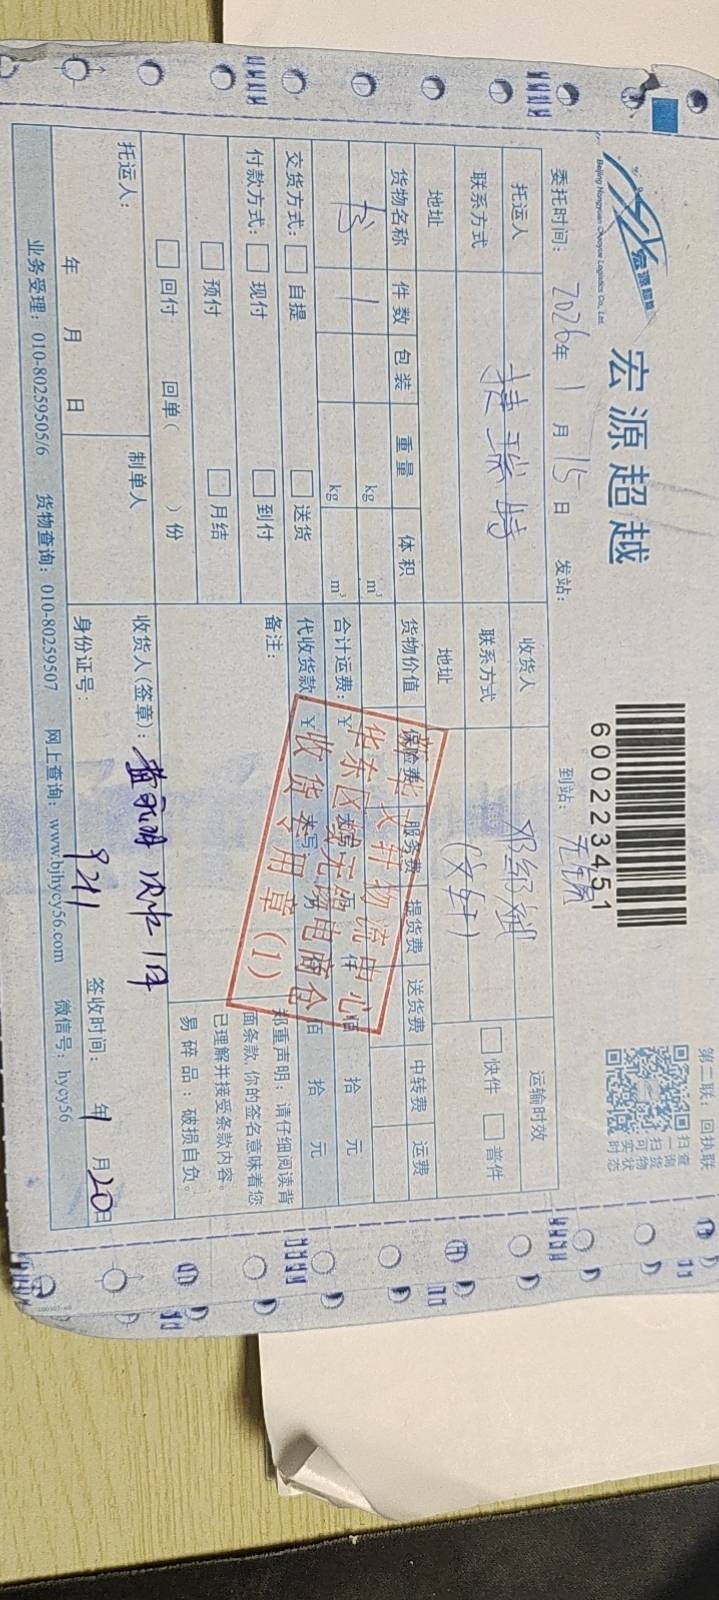 宏源超越
Beijing Hongyuan Chaoyue Logistics Co., Ltd.
宏源超越
600223451
第二联：回执联
扫查
一询
扫货
可物
实状
时态
委托时间： 2026年 1 月 15 日 发站： 到站： 无锡
托运人 捷瑞特 收货人 运输时效
联系方式 联系方式 (文轩) 快件 普件
地址 地址
货物名称 件数 包装 重量 体积 货物价值 保险费 服务费 提货费 送货费 中转费 运费
书 1 kg m³
kg m³ 合计运费：¥ 佰 拾 元
交货方式： 自提 送货 代收货款：¥ 佰 拾 元
付款方式： 现付 到付 备注：
预付 月结
回付 回单（ ）份
郑重声明：请仔细阅读背
面条款，你的签名意味着您
已理解并接受条款内容。
易碎品：破损自负。
文轩物流中心
华东区域无锡电商仓
收货专用章(1)
托运人： 制单人 收货人(签章)： 实收1件
年 月 日 身份证号： 9211 签收时间： 年 1 月 20日
业务受理：010-80259505/6 货物查询：010-80259507 网上查询：www.bjhycy56.com 微信号：hycy56